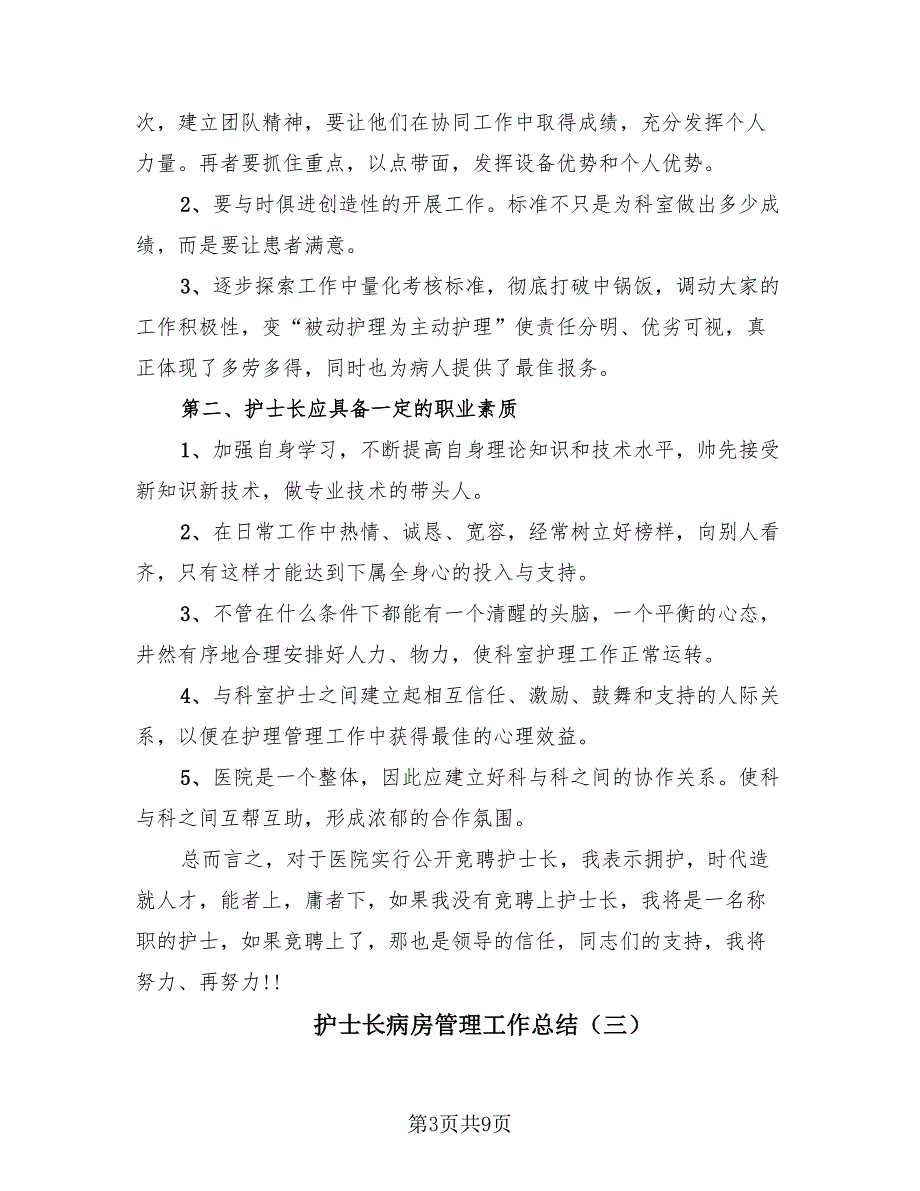 次，建立团队精神，要让他们在协同工作中取得成绩，充分发挥个人
力量。再者要抓住重点，以点带面，发挥设备优势和个人优势。
2、要与时俱进创造性的开展工作。标准不只是为科室做出多少成
绩，而是要让患者满意。
3、逐步探索工作中量化考核标准，彻底打破中锅饭，调动大家的
工作积极性，变“被动护理为主动护理”使责任分明、优劣可视，真
正体现了多劳多得，同时也为病人提供了最佳报务。
第二、护士长应具备一定的职业素质
1、加强自身学习，不断提高自身理论知识和技术水平，帅先接受
新知识新技术，做专业技术的带头人。
2、在日常工作中热情、诚恳、宽容，经常树立好榜样，向别人看
齐，只有这样才能达到下属全身心的投入与支持。
3、不管在什么条件下都能有一个清醒的头脑，一个平衡的心态，
井然有序地合理安排好人力、物力，使科室护理工作正常运转。
4、与科室护士之间建立起相互信任、激励、鼓舞和支持的人际关
系，以便在护理管理工作中获得最佳的心理效益。
5、医院是一个整体，因此应建立好科与科之间的协作关系。使科
与科之间互帮互助，形成浓郁的合作氛围。
总而言之，对于医院实行公开竞聘护士长，我表示拥护，时代造
就人才，能者上，庸者下，如果我没有竞聘上护士长，我将是一名称
职的护士，如果竞聘上了，那也是领导的信任，同志们的支持，我将
努力、再努力!!
护士长病房管理工作总结（三）
第3页共9页